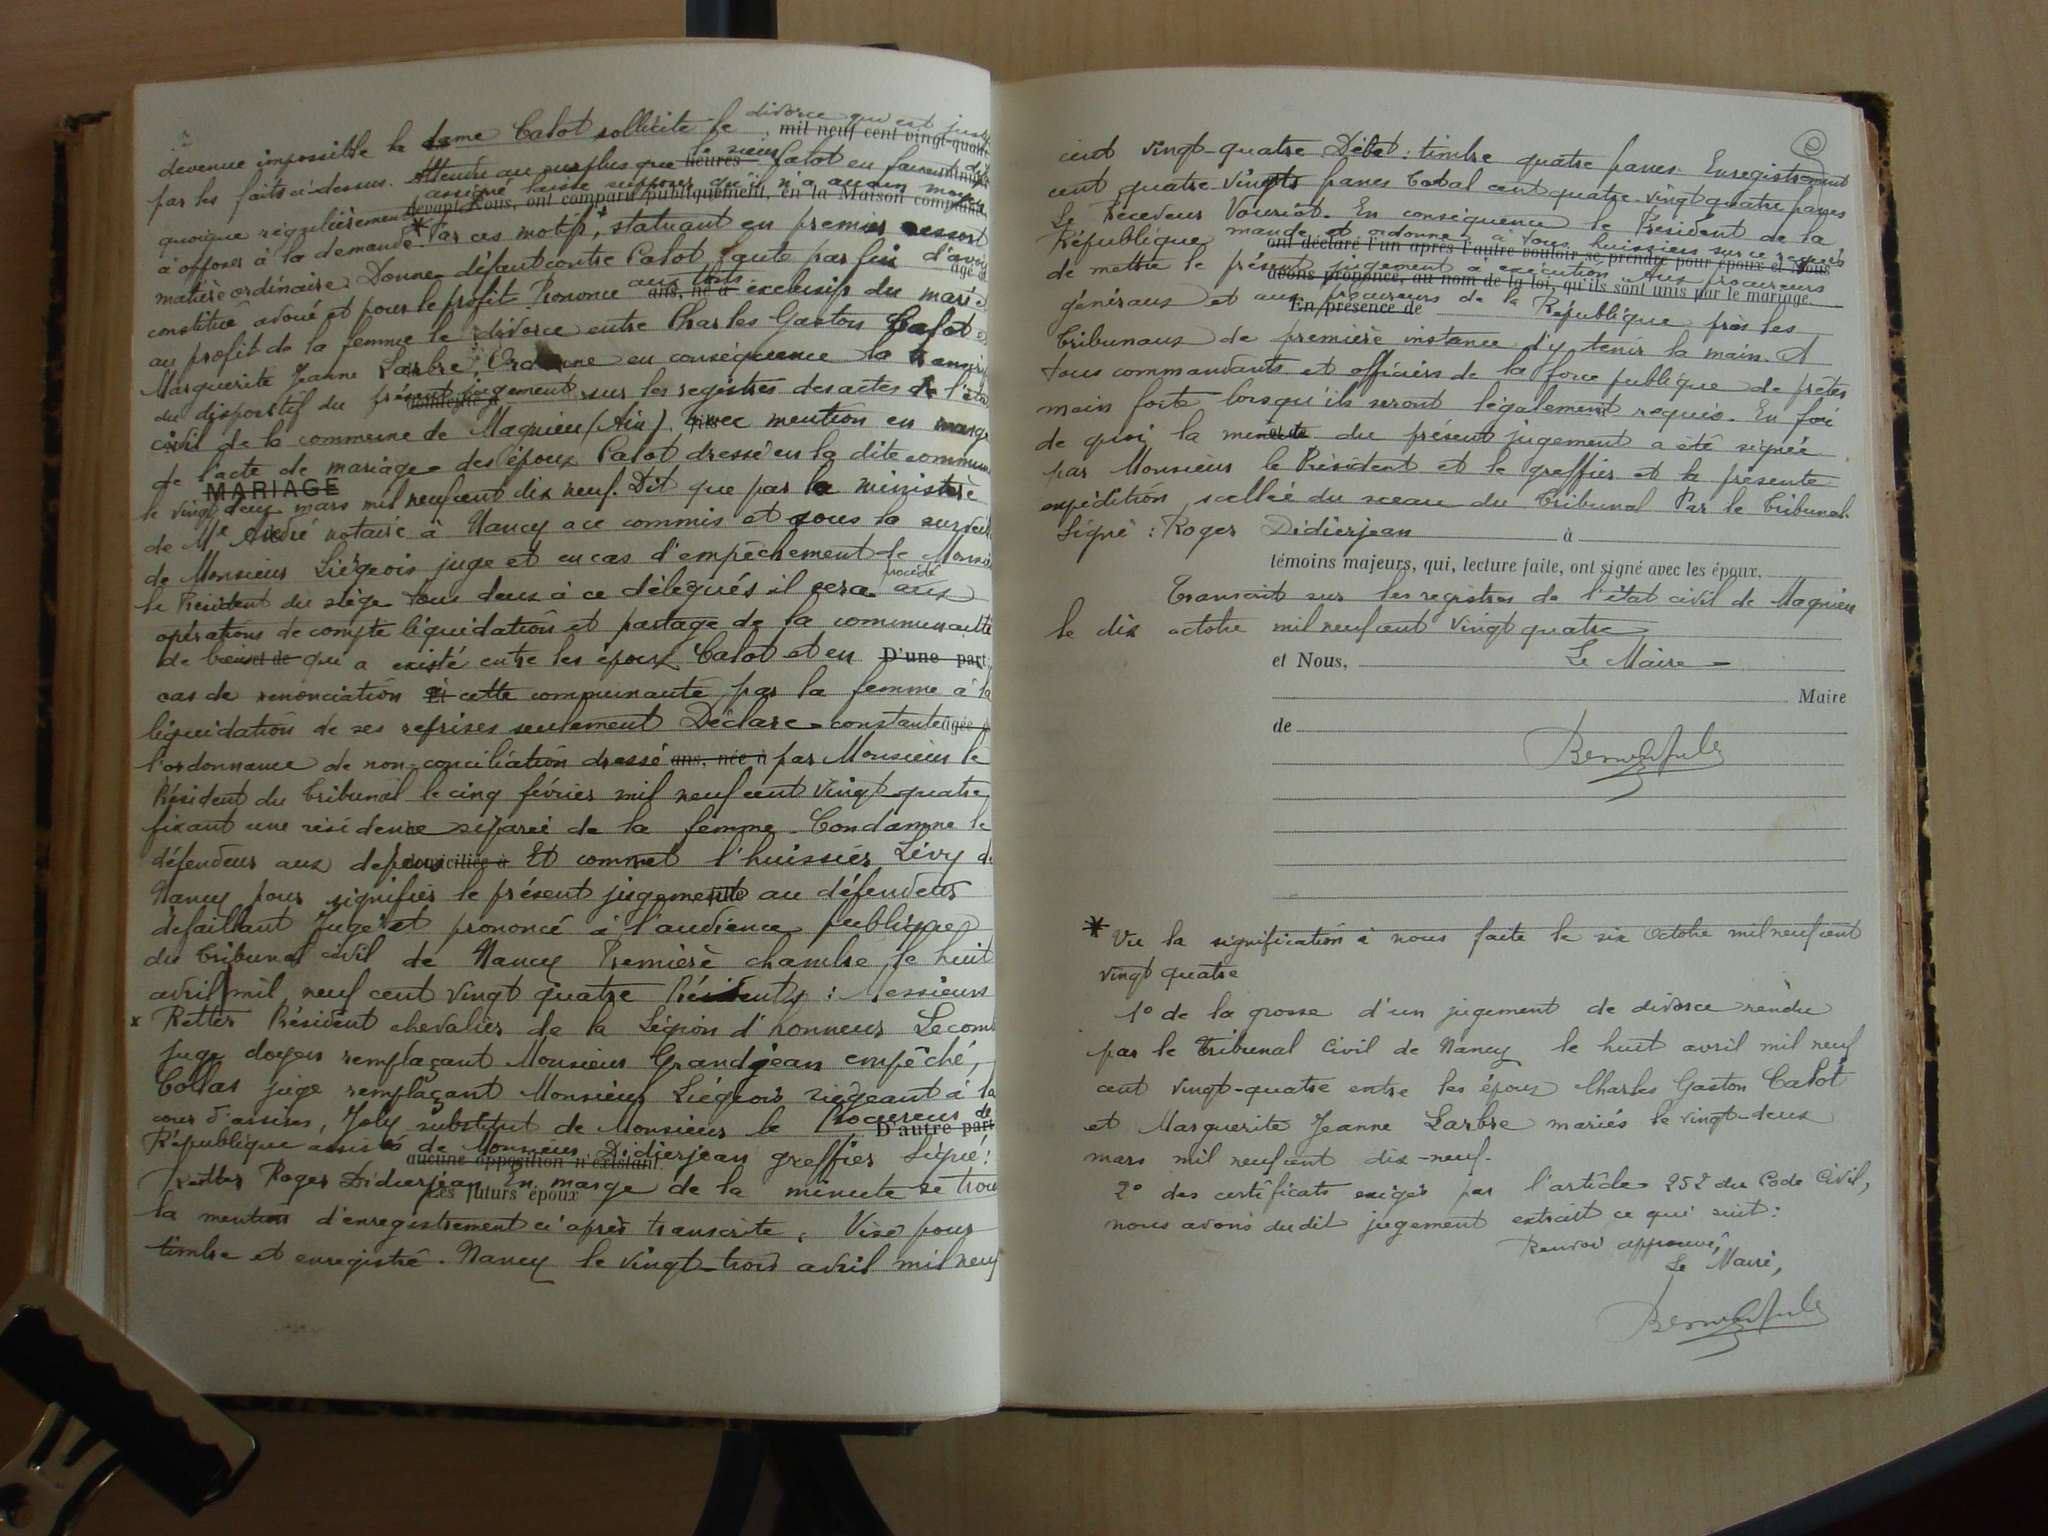 devenue impossible la dame Calot sollicite le divorce qui est
mil neuf cent vingt-quatre
par les faits ci-dessus. Attendu au surplus que le sieur Calot en faisant
heures
quoique régulièrement assigné laisse supposer qu'il n'a aucun moyen
devant Nous, ont comparu publiquement, en la Maison commune,
à opposer à la demande * Par ces motifs, statuant en premier ressort
matière ordinaire Donne défaut contre Calot faute par lui d'avoir
âgé
constitué avoué et pour le profit Prononce aux torts exclusifs du mari
ans, né à
au profit de la femme le divorce entre Charles Gaston Calot
Marguerite Jeanne Larbre, Ordonne en conséquence la
du dispositif du présent jugement sur les registres des actes de l'état
civil de la commune de Magnieu (Ain), avec mention en marge
de l'acte de mariage des époux Calot dressé en la dite commune
MARIAGE
le vingt deux mars mil neuf cent dix neuf. Dit que par le ministère
de Me André notaire à Nancy a ce commis et sous la
de Monsieur Liégeois juge et en cas d'empêchement de
le Président du siège tous deux à ce délégués il sera procédé aux
opérations de compte liquidation et partage de la communauté
de biens qui a existé entre les époux Calot et en D'une part
cas de renonciation Et cette communauté par la femme à la
liquidation de ses reprises seulement Déclare constante âgée
l'ordonnance de non-conciliation dressé ans, née à par Monsieur le
Président du Tribunal le cinq février mil neuf cent vingt quatre
fixant une résidence séparée de la femme. Condamne le
défendeur aux dépens domiciliée à Et commet l'huissier Lévy de
Nancy pour signifier le présent jugement au défendeur
défaillant Jugé et prononcé à l'audience publique
du Tribunal civil de Nancy Première chambre, le huit
avril mil neuf cent vingt quatre Présidents : Messieurs
x Retter Président chevalier de la Légion d'honneur
juge doyen remplaçant Monsieur Grandjean empêché,
Collas juge remplaçant Monsieur Liégeois siégeant à la
cour d'assises, Joly substitut de Monsieur le Procureur de
D'autre part
République assistés de Monsieur Didierjean greffier Signé :
aucune opposition n'existant
Retter Roger Didierjean En marge de la minute se
Les futurs époux
la mention d'enregistrement ci après transcrite, Visé pour
timbre et enregistré. Nancy le vingt-trois avril mil neuf
cent vingt-quatre Débet : timbre quatre francs Enregistrement
cent quatre-vingts francs Total cent quatre-vingt quatre francs
Le Receveur Vouriot. En conséquence le Président de la
République mande et ordonne à tous huissiers sur ce requis
ont déclaré l'un après l'autre vouloir se prendre pour époux et Nous
de mettre le présent jugement à exécution Aux procureurs
avons prononcé, au nom de la loi, qu'ils sont unis par le mariage.
généraux et aux procureurs de la République près les
En présence de
Tribunaux de première instance d'y tenir la main. A
tous commandants et officiers de la force publique de prêter
main forte lorsqu'ils seront légalement requis. En foi
de quoi la minute du présent jugement a été signée
par Monsieur le Président et le greffier et la présente
expédition scellée du sceau du Tribunal Par le Tribunal.
Signé : Roger Didierjean à
témoins majeurs, qui, lecture faite, ont signé avec les époux.
Transcrit sur les registres de l'état civil de Magnieu
le dix octobre mil neuf cent vingt quatre
et Nous, Le Maire
Maire
de
* Vu la signification à nous faite le six Octobre mil neuf cent
vingt quatre
1° de la grosse d'un jugement de divorce rendu
par le Tribunal Civil de Nancy le huit avril mil neuf
cent vingt-quatre entre les époux Charles Gaston Calot
et Marguerite Jeanne Larbre mariés le vingt-deux
mars mil neuf cent dix-neuf.
2° des certificats exigés par l'article 252 du Code Civil,
nous avons dudit jugement extrait ce qui suit :
Renvoi approuvé,
Le Maire,